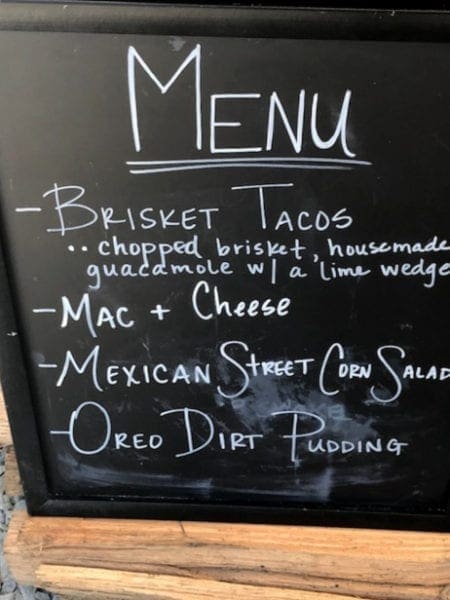 MENU
- BRISKET TACOS
•• chopped brisket, housemade
guacamole w/ a lime wedge
- MAC + Cheese
- MEXICAN STREET CORN SALAD
- OREO DIRT PUDDING